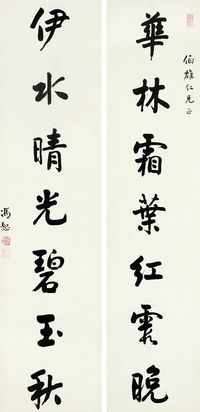 伯雄仁兄正
華林霜葉紅霞晚
伊水晴光碧玉秋
馮恕